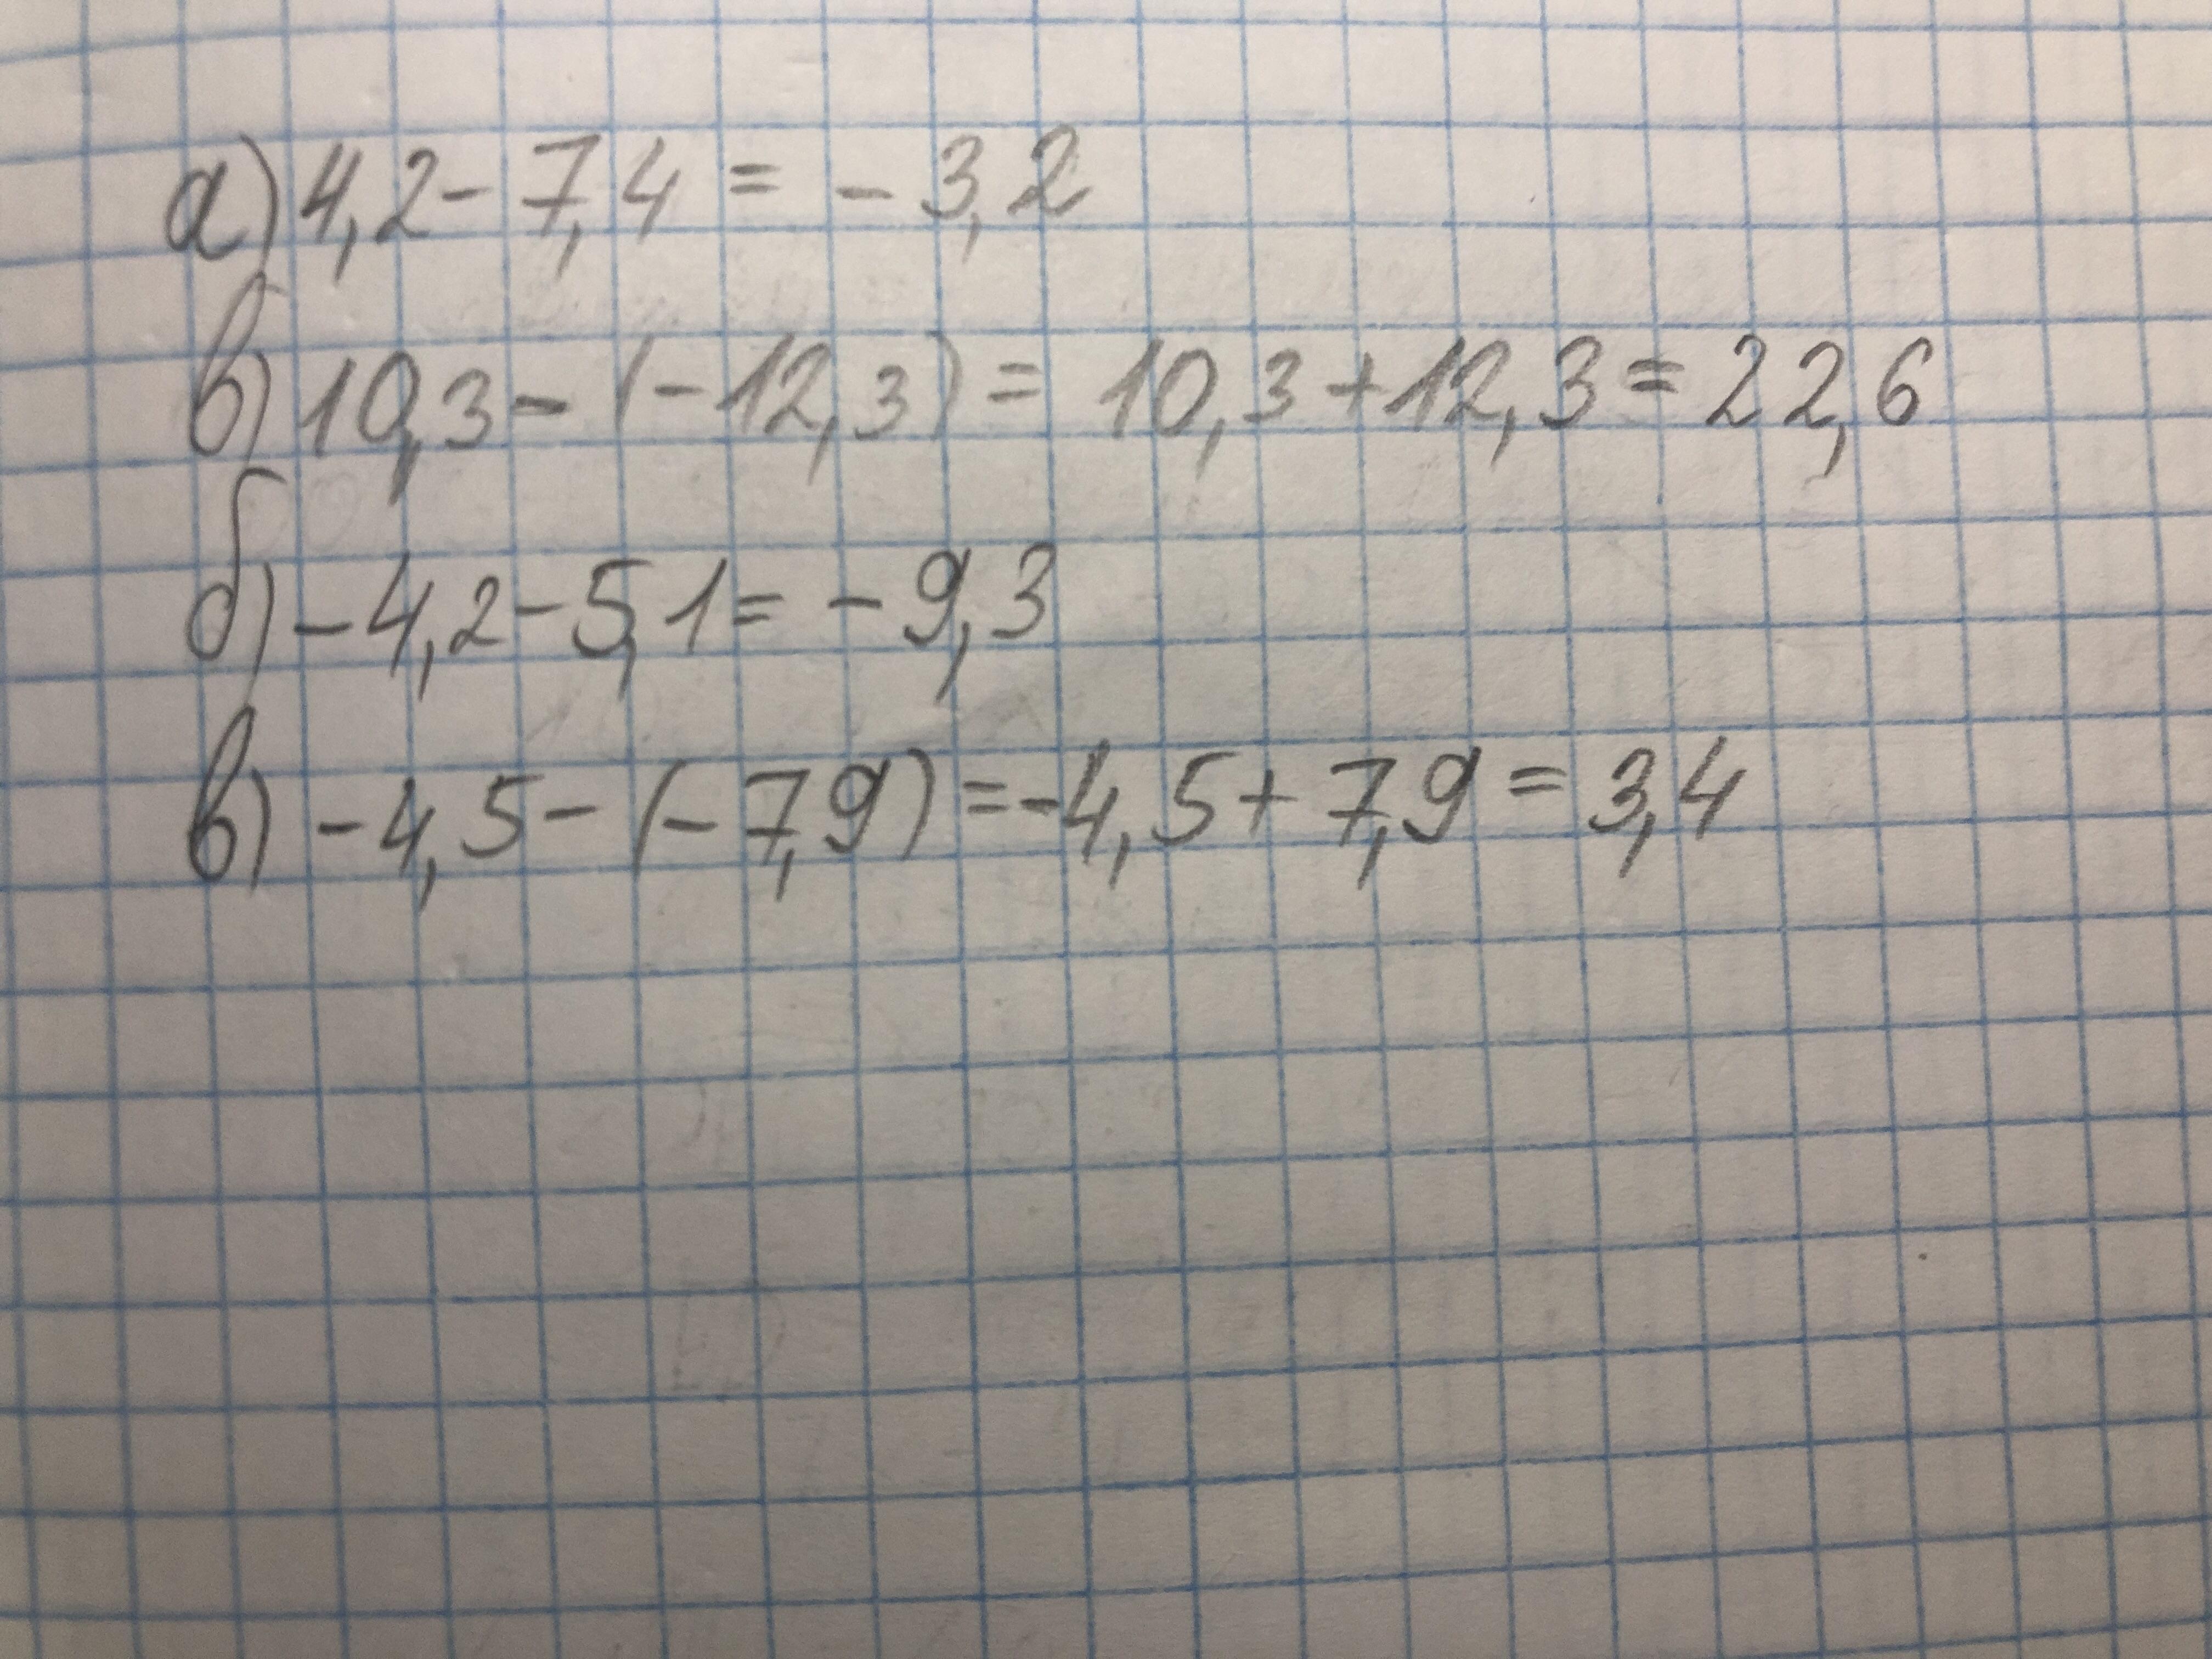 а) 4,2 - 7,4 = - 3,2
в) 10,3 - (-12,3) = 10,3 + 12,3 = 22,6
б) - 4,2 - 5,1 = - 9,3
в) - 4,5 - (- 7,9) = -4,5 + 7,9 = 3,4